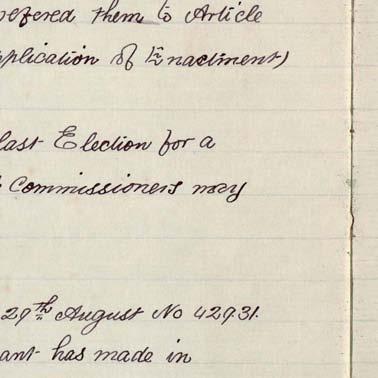 refered them to Article
pplication of Enactment)
last Election for a
Commissioners may
29th August No 42931.
ant has made in